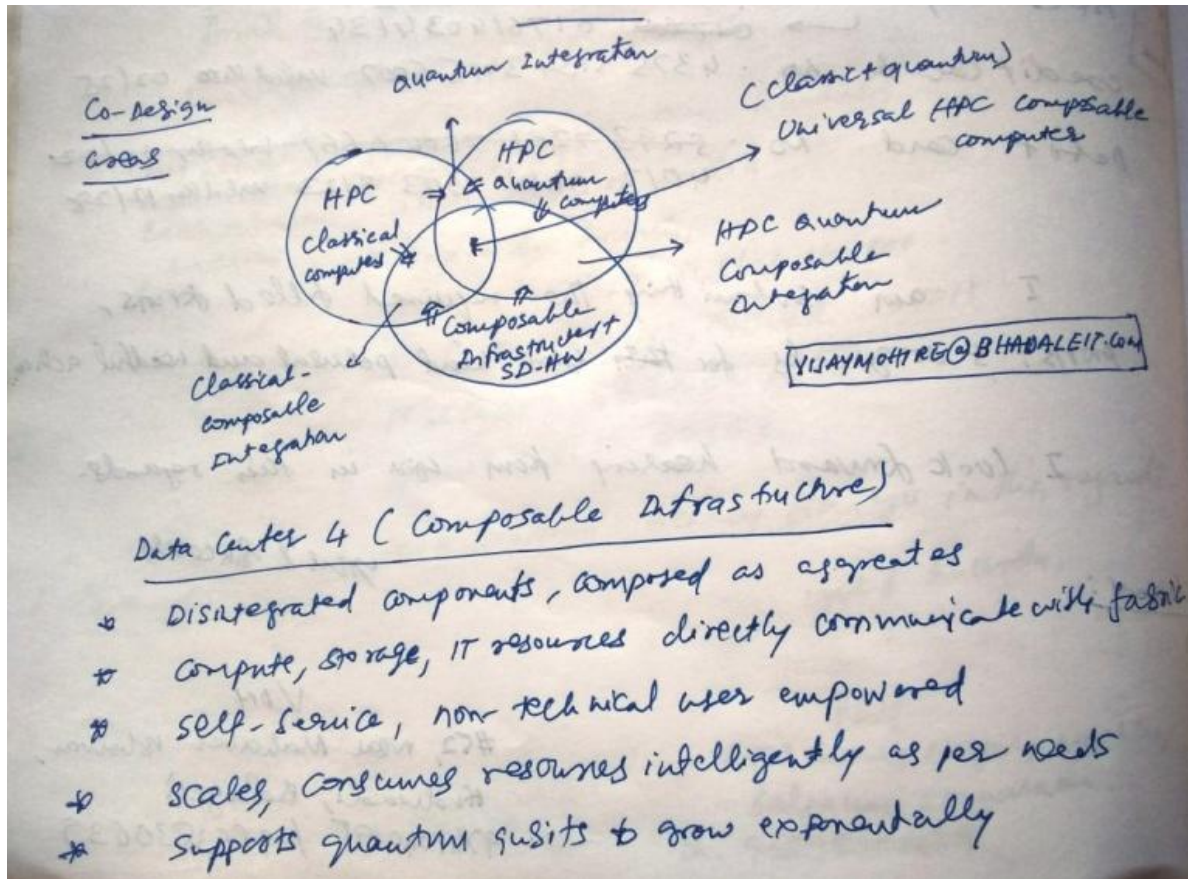 Quantum Integration
Co-Design
areas
(Classic + quantum)
Universal HPC composable
computer
HPC
Classical
computer
HPC
Quantum
computers
HPC Quantum
Composable
Integration
Composable
Infrastructure +
SD-HW
VIJAYMOHIRE@BHADALEIT.COM
Classical-
composable
Integration
Data Center 4 (Composable Infrastructure)
* Disintegrated components, composed as aggregates
* compute, storage, IT resources directly communicate with fabric
* self-service, non technical user empowered
* scales, consumes resources intelligently as per needs
* supports quantum qubits to grow exponentially